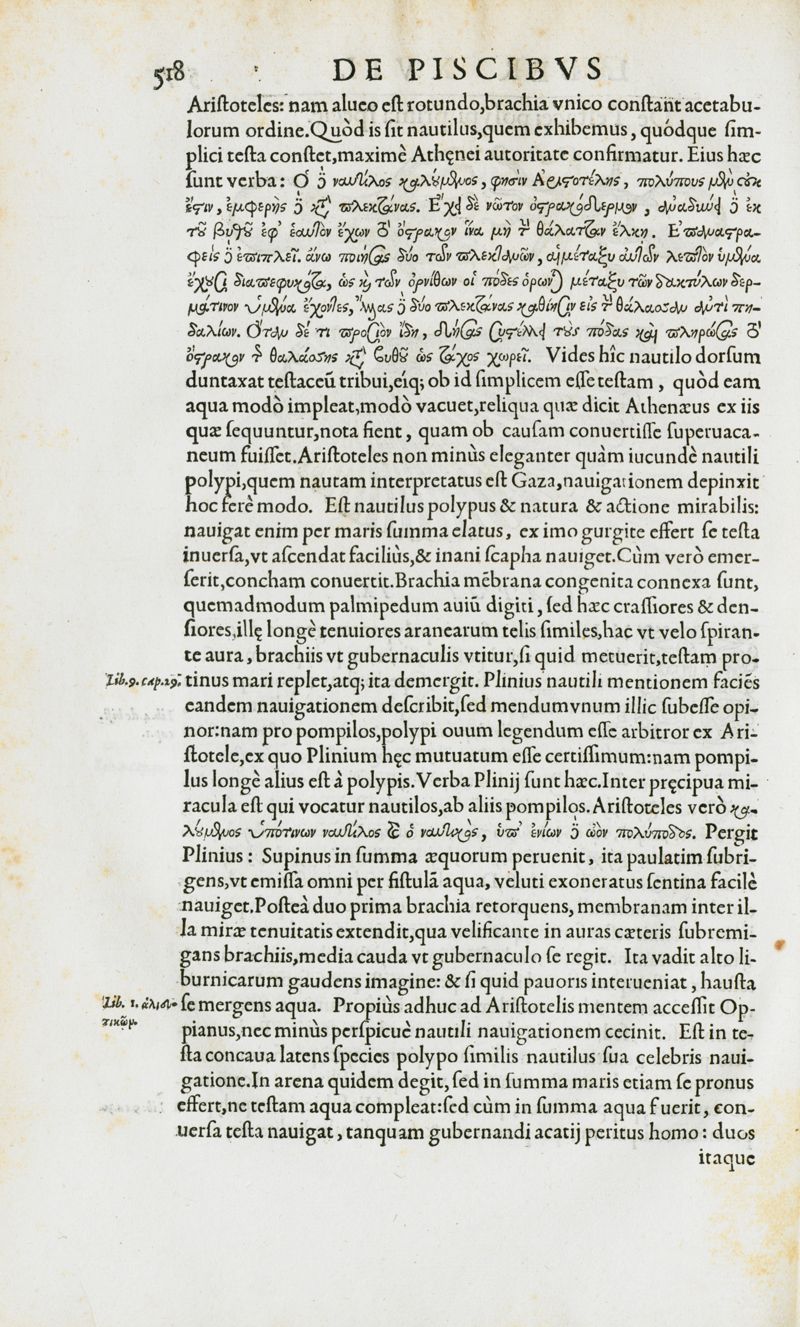 518 DE PISCIBVS
Ariſtoteles: nam alueo eſt rotundo,brachia vnico conſtant acetabu-
lorum ordine.Quòd is ſit nautilus,quem exhibemus, quódque ſim-
plici teſta conſtet,maximè Athęnei autoritate confirmatur. Eius hæc
ſunt verba: Ὁ ὃ ναυτίλος καλούμενος, φησὶν Ἀριστοτέλης, πολύπους μὲν οὐκ
ἔστιν, ἐμφερὴς ὃ κτ τὰς πλεκτάνας. Ἔχει δὲ νῶτον ὀστρακόδερμον, ἀναδύεται ὃ ἐκ
τοῦ βυθοῦ ἐφ' ἑαυτὸν ἔχων τὸ ὄστρακον ἵνα μὴ τὴν θάλατταν ἕλκῃ. Ἐπαναστρα-
φεὶς ὃ ἐπιπλεῖ. ἄνω ποιήσας δύο τῶν πλεκτανῶν, αἳ μέταξυ αὑτῶν λεπτὸν ὑμένα
ἔχουσι διαπεφυκότα, ὡς καὶ τῶν ὀρνίθων οἱ πόδες ὁρῶνται μέταξυ τῶν δακτύλων δερ-
μάτινον ὑμένα ἔχοντες, ἄλλας ὃ δύο πλεκτάνας καθίησιν εἰς τὴν θάλασσαν ἀντὶ πη-
δαλίων. Ὅταν δέ τι προσιὸν ἴδῃ, δείσας συστέλλει τοὺς πόδας καὶ πληρώσας τὸ
ὄστρακον τῆς θαλάσσης κτ βυθοῦ ὡς τάχος χωρεῖ. Vides hîc nautilo dorſum
duntaxat teſtaceū tribui,eíq; ob id ſimplicem eſſe teſtam, quòd eam
aqua modò impleat,modò vacuet,reliqua quæ dicit Athenæus ex iis
quæ ſequuntur,nota fient, quam ob cauſam conuertiſſe ſuperuaca-
neum fuiſſet.Ariſtoteles non minùs eleganter quàm iucundè nautili
polypi,quem nautam interpretatus eſt Gaza,nauigationem depinxit
hoc ferè modo. Eſt nautilus polypus & natura & actione mirabilis:
nauigat enim per maris ſumma elatus, ex imo gurgite effert ſe teſta
inuerſa,vt aſcendat faciliùs,& inani ſcapha nauiget.Cùm verò emer-
ſerit,concham conuertit.Brachia mēbrana congenita connexa ſunt,
quemadmodum palmipedum auiū digiti, ſed hæc craſſiores & den-
ſiores,illę longè tenuiores aranearum telis ſimiles,hac vt velo ſpiran-
te aura, brachiis vt gubernaculis vtitur,ſi quid metuerit,teſtam pro-
Lib.9. cap.29. tinus mari replet,atq; ita demergit. Plinius nautili mentionem faciēs
eandem nauigationem deſcribit,ſed mendumvnum illic ſubeſſe opi-
nor:nam pro pompilos,polypi ouum legendum eſſe arbitror ex Ari-
ſtotele,ex quo Plinium hęc mutuatum eſſe certiſſimum:nam pompi-
lus longè alius eſt à polypis.Verba Plinij ſunt hæc.Inter pręcipua mi-
racula eſt qui vocatur nautilos,ab aliis pompilos.Ariſtoteles verò κα-
λούμενος ὑπότινων ναυτίλος καὶ ὁ ναυτικὸς, ὑπ' ἐνίων ὃ ὠὸν πολύποδος. Pergit
Plinius: Supinus in ſumma æquorum peruenit, ita paulatim ſubri-
gens,vt emiſſa omni per fiſtulā aqua, veluti exoneratus ſentina facilè
nauiget.Poſteà duo prima brachia retorquens, membranam inter il-
la miræ tenuitatis extendit,qua velificante in auras cæteris ſubremi-
gans brachiis,media cauda vt gubernaculo ſe regit. Ita vadit alto li-
burnicarum gaudens imagine: & ſi quid pauoris interueniat, hauſta
Lib. 1. ἁλιευ- ſe mergens aqua. Propiùs adhuc ad Ariſtotelis mentem acceſſit Op-
τικῶμ. pianus,nec minùs perſpicuè nautili nauigationem cecinit. Eſt in te-
ſta concaua latens ſpecies polypo ſimilis nautilus ſua celebris naui-
gatione.In arena quidem degit, ſed in ſumma maris etiam ſe pronus
effert,ne teſtam aqua compleat:ſed cùm in ſumma aqua fuerit, con-
uerſa teſta nauigat, tanquam gubernandi acatij peritus homo: duos
itaque